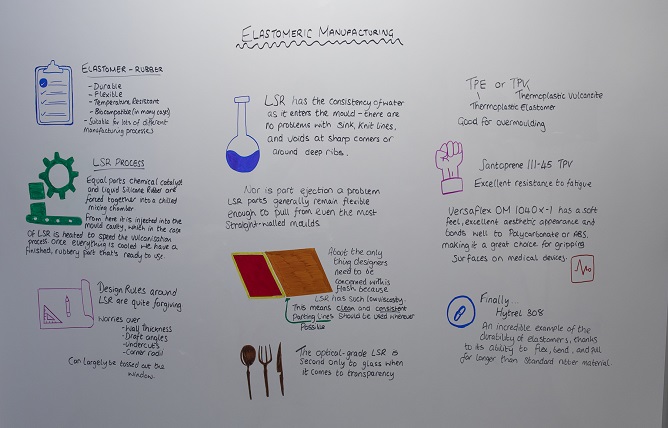 ELASTOMERIC MANUFACTURING
ELASTOMER - RUBBER
- Durable
- Flexible
- Temperature Resistant
- Biocompatible (in many cases)
- Suitable for lots of different
manufacturing processes)
LSR PROCESS
Equal parts chemical catalyst
and liquid Silicone Rubber are
forced together into a chilled
mixing chamber
From here it is injected into the
mould cavity, which in the case
of LSR is heated to speed the vulcanisation
process once everything is cooled we have a
finished, rubbery part that's ready to use.
Design Rules around
LSR are quite forgiving
Worries over
- Wall Thickness
- Draft angles
- Undercuts
- Corner radii
Can largely be tossed out the
window.
LSR has the consistency of water
as it enters the mould - there are
no problems with sink, knit lines,
and voids at sharp corners or
around deep ribs.
Nor is part ejection a problem
LSR parts generally remain flexible
enough to pull from even the most
straight-walled moulds
About the only
thing designers
need to be
concerned with is
flash because
LSR has such low viscosity.
This means clean and consistent
Parting lines should be used wherever
Possible
The optical-grade LSR is
second only to glass when
it comes to transparency
TPE or TPV
Thermoplastic Vulcanizate
Thermoplastic Elastomer
Good for overmoulding
Santoprene 111-45 TPV
Excellent resistance to fatigue
Versaflex OM 1040X-1 has a soft
feel, excellent aesthetic appearance and
bonds well to Polycarbonate or ABS,
making it a great choice for gripping
surfaces on medical devices.
Finally...
Hytrel 308
An incredible example of the
durability of elastomers, thanks
to its ability to flex, bend, and pull
far longer than standard rubber material.